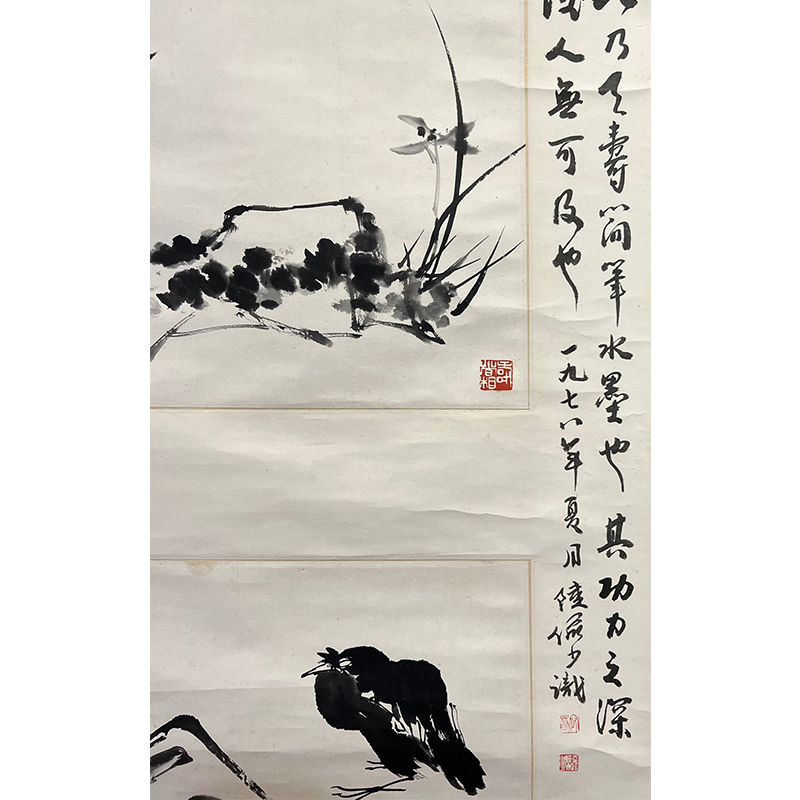 乃天壽簡筆水墨也其功力之深
人無可及也一九七八年夏月陸儼少識